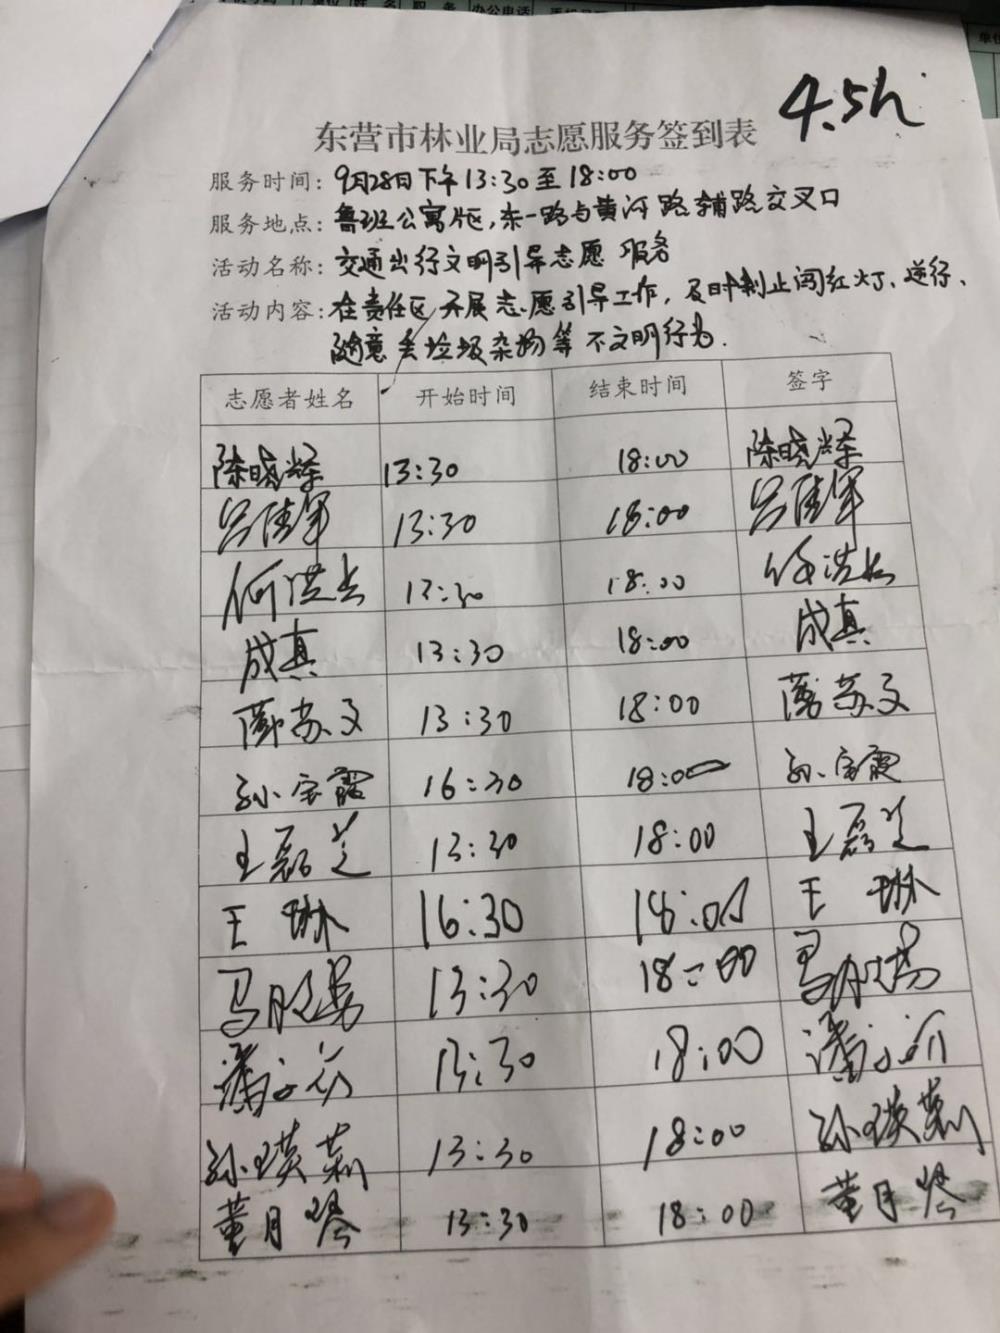 单位 姓名 职务 办公电话
4.5h
东营市林业局志愿服务签到表
服务时间：9月28日下午13:30至18:00
服务地点：鲁班公寓片区，东一路与黄河路辅路交叉口
活动名称：交通出行文明引导志愿服务
活动内容：在责任区开展志愿引导工作，及时制止闯红灯、逆行、
随意丢垃圾杂物等不文明行为．
志愿者姓名 开始时间 结束时间 签字
陈晓辉 13:30 18:00 陈晓辉
吕佳军 13:30 18:00 吕佳军
13:30 18:00
成真 13:30 18:00 成真
苏文 13:30 18:00 苏文
孙宝霞 16:30 18:00 孙宝霞
王磊芝 13:30 18:00 王磊芝
王琳 16:30 18:00 王琳
马 13:30 18:00 马
潘 13:30 18:00 潘
孙瑛莉 13:30 18:00 孙瑛莉
董月琴 13:30 18:00 董月琴